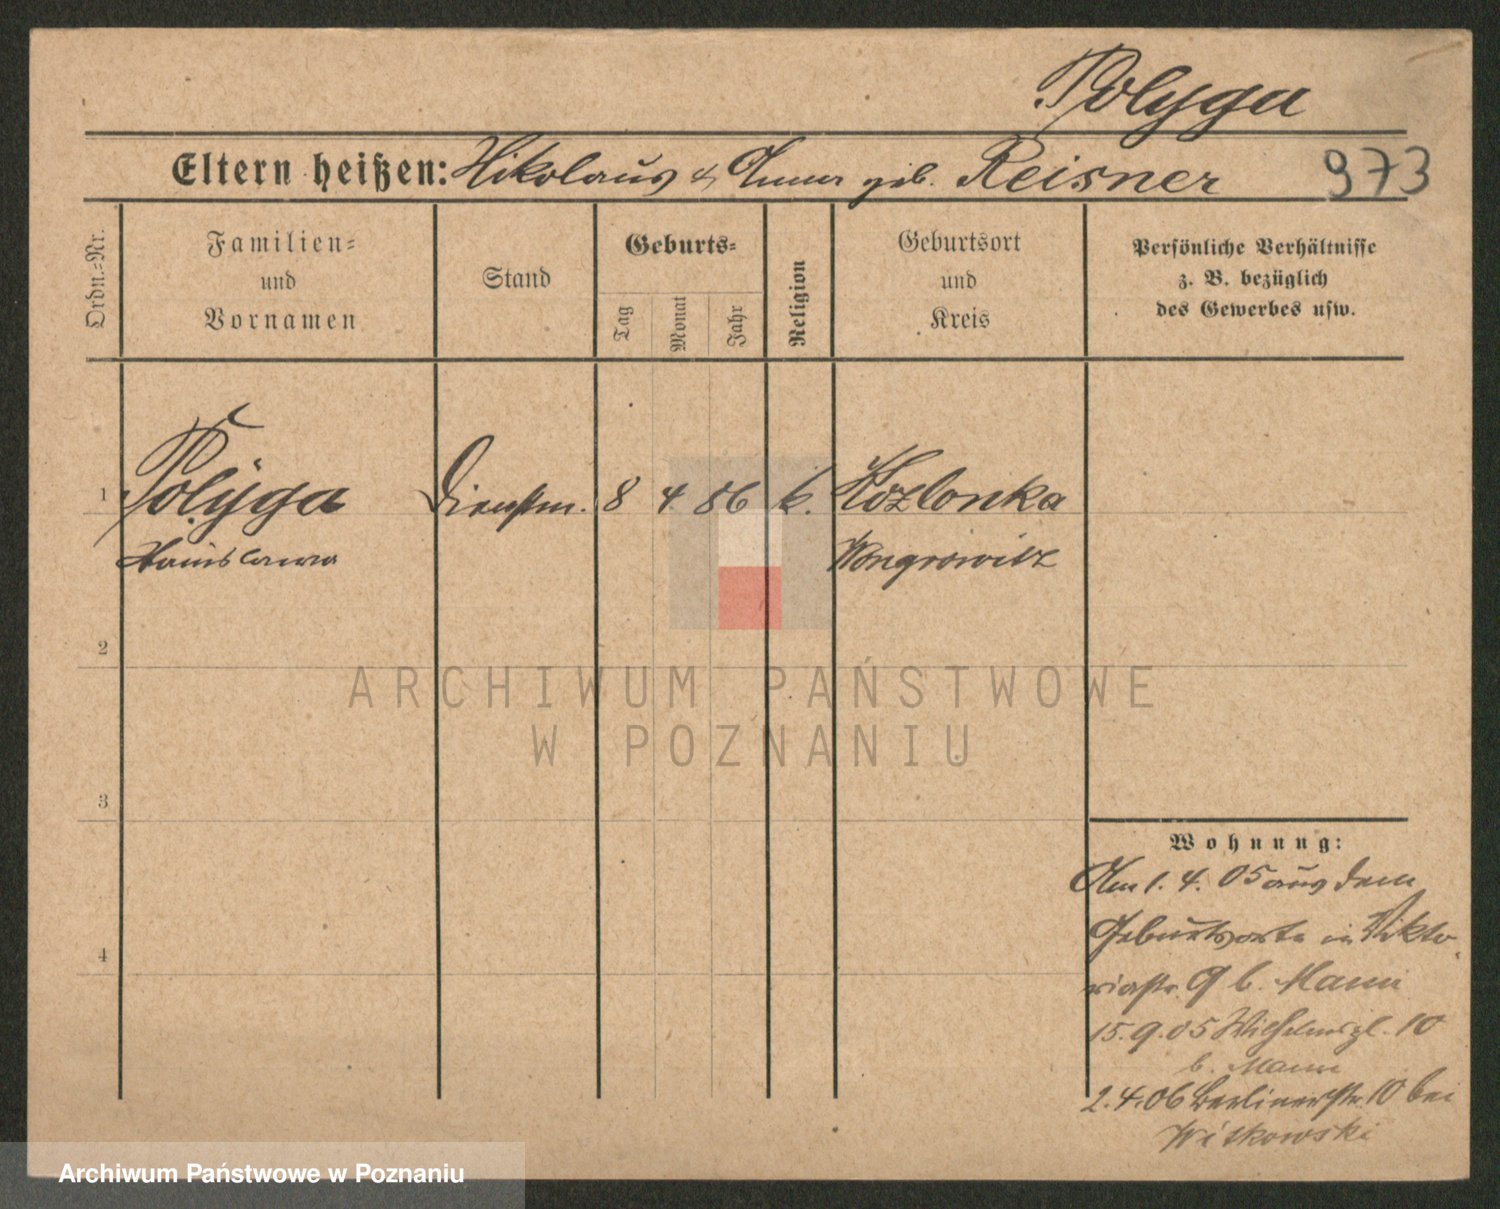 Polyga
Eltern heißen: Nikolaus & Anna geb. Reisner 973
Ordn.=Nr.
Familien=
und
Vornamen
Stand
Geburts=
Tag
Monat
Jahr
Religion
Geburtsort
und
Kreis
Persönliche Verhältnisse
z. B. bezüglich
des Gewerbes usw.
1 Polyga Dienstm. 8 4. 86 k. Kozlonka
Stanislawa Wongrowitz
2
3
4
ARCHIWUM PAŃSTWOWE
W POZNANIU
Wohnung:
Am 1. 4. 05 aus dem
Geburtsorte in Vikto
riastr. 9 b. Mann
15. 9. 05 Wilhelmspl. 10
b. Mann
2. 4. 06 Berlinerstr. 10 bei
Witkowski
Archiwum Państwowe w Poznaniu